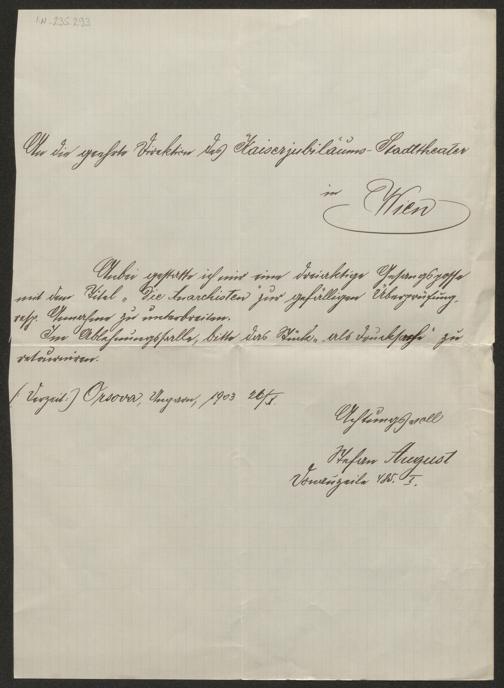 I.N. 235.293
An die geehrte Direktion des Kaiserjubiläums-Stadttheater
in Wien
Anbei gestatte ich mir eine dreiaktige Gesangsposse
mit dem Titel „Die Anarchisten" zur gefälligen Überprüfung
resp. Annahme zu unterbreiten.
Im Ablehnungsfalle, bitte das Stück „als Drucksache" zu
retournieren.
(Derzeit:) Orsova, Ungarn, 1903 26/I
Achtungsvoll
Stefan August
Donauzeile 485. I.